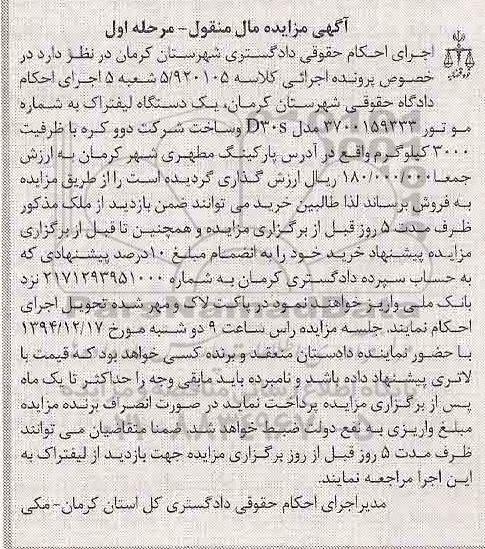 آگهی مزایده مال منقول- مرحله اول
اجرای احکام حقوقی دادگستری شهرستان کرمان در نظر دارد در
خصوص پرونده اجرائی کلاسه ۵/۹۲۰۱۰۵ شعبه ۵ اجرای احکام
دادگاه حقوقی شهرستان کرمان، یک دستگاه لیفتراک به شماره
مو تور ۳۷۰۰۱۵۹۳۳۳ مدل D۳۰s وساخت شرکت دوو کره با ظرفیت
۳۰۰۰ کیلوگرم واقع در آدرس پارکینگ مطهری شهر کرمان به ارزش
جمعا۱۸۰/۰۰۰/۰۰۰ ریال ارزش گذاری گردیده است را از طریق مزایده
به فروش برساند لذا طالبین خرید می توانند ضمن بازدید از ملک مذکور
ظرف مدت ۵ روز قبل از برگزاری مزایده و همچنین تا قبل از برگزاری
مزایده پیشنهاد خرید خود را به انضمام مبلغ ۱۰درصد پیشنهادی که
به حساب سپرده دادگستری کرمان به شماره ۲۱۷۱۲۹۳۹۵۱۰۰۰ نزد
بانک ملی واریز خواهند نمود در پاکت لاک و مهر شده تحویل اجرای
احکام نمایند. جلسه مزایده راس ساعت ۹ دو شنبه مورخ ۱۳۹۴/۱۲/۱۷
با حضور نماینده دادستان منعقد و برنده کسی خواهد بود که قیمت با
لاتری پیشنهاد داده باشد و نامبرده باید مابقی وجه را حداکثر تا یک ماه
پس از برگزاری مزایده پرداخت نماید در صورت انصراف برنده مزایده
مبلغ واریزی به نفع دولت ضبط خواهد شد. ضمنا متقاضیان می توانند
ظرف مدت ۵ روز قبل از روز برگزاری مزایده جهت بازدید از لیفتراک به
این اجرا مراجعه نمایند.
مدیراجرای احکام حقوقی دادگستری کل استان کرمان- مکی